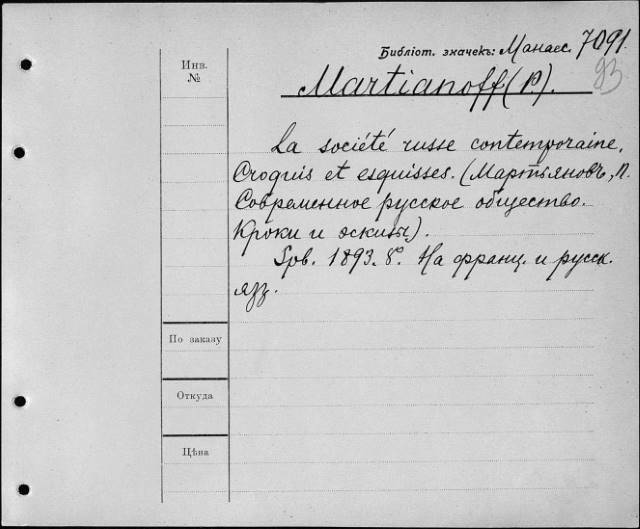 Библіот. значекъ: Манасс. 7091.
93
Инв.
№
Martianoff (P).
La société russe contemporaine.
Croquis et esquisses. (Мартьяновъ, П.
Современное русское общество.
Кроки и эскизы).
Spb. 1893. 8°. На франц. и русск.
язз.
По заказу
Откуда
Цѣна